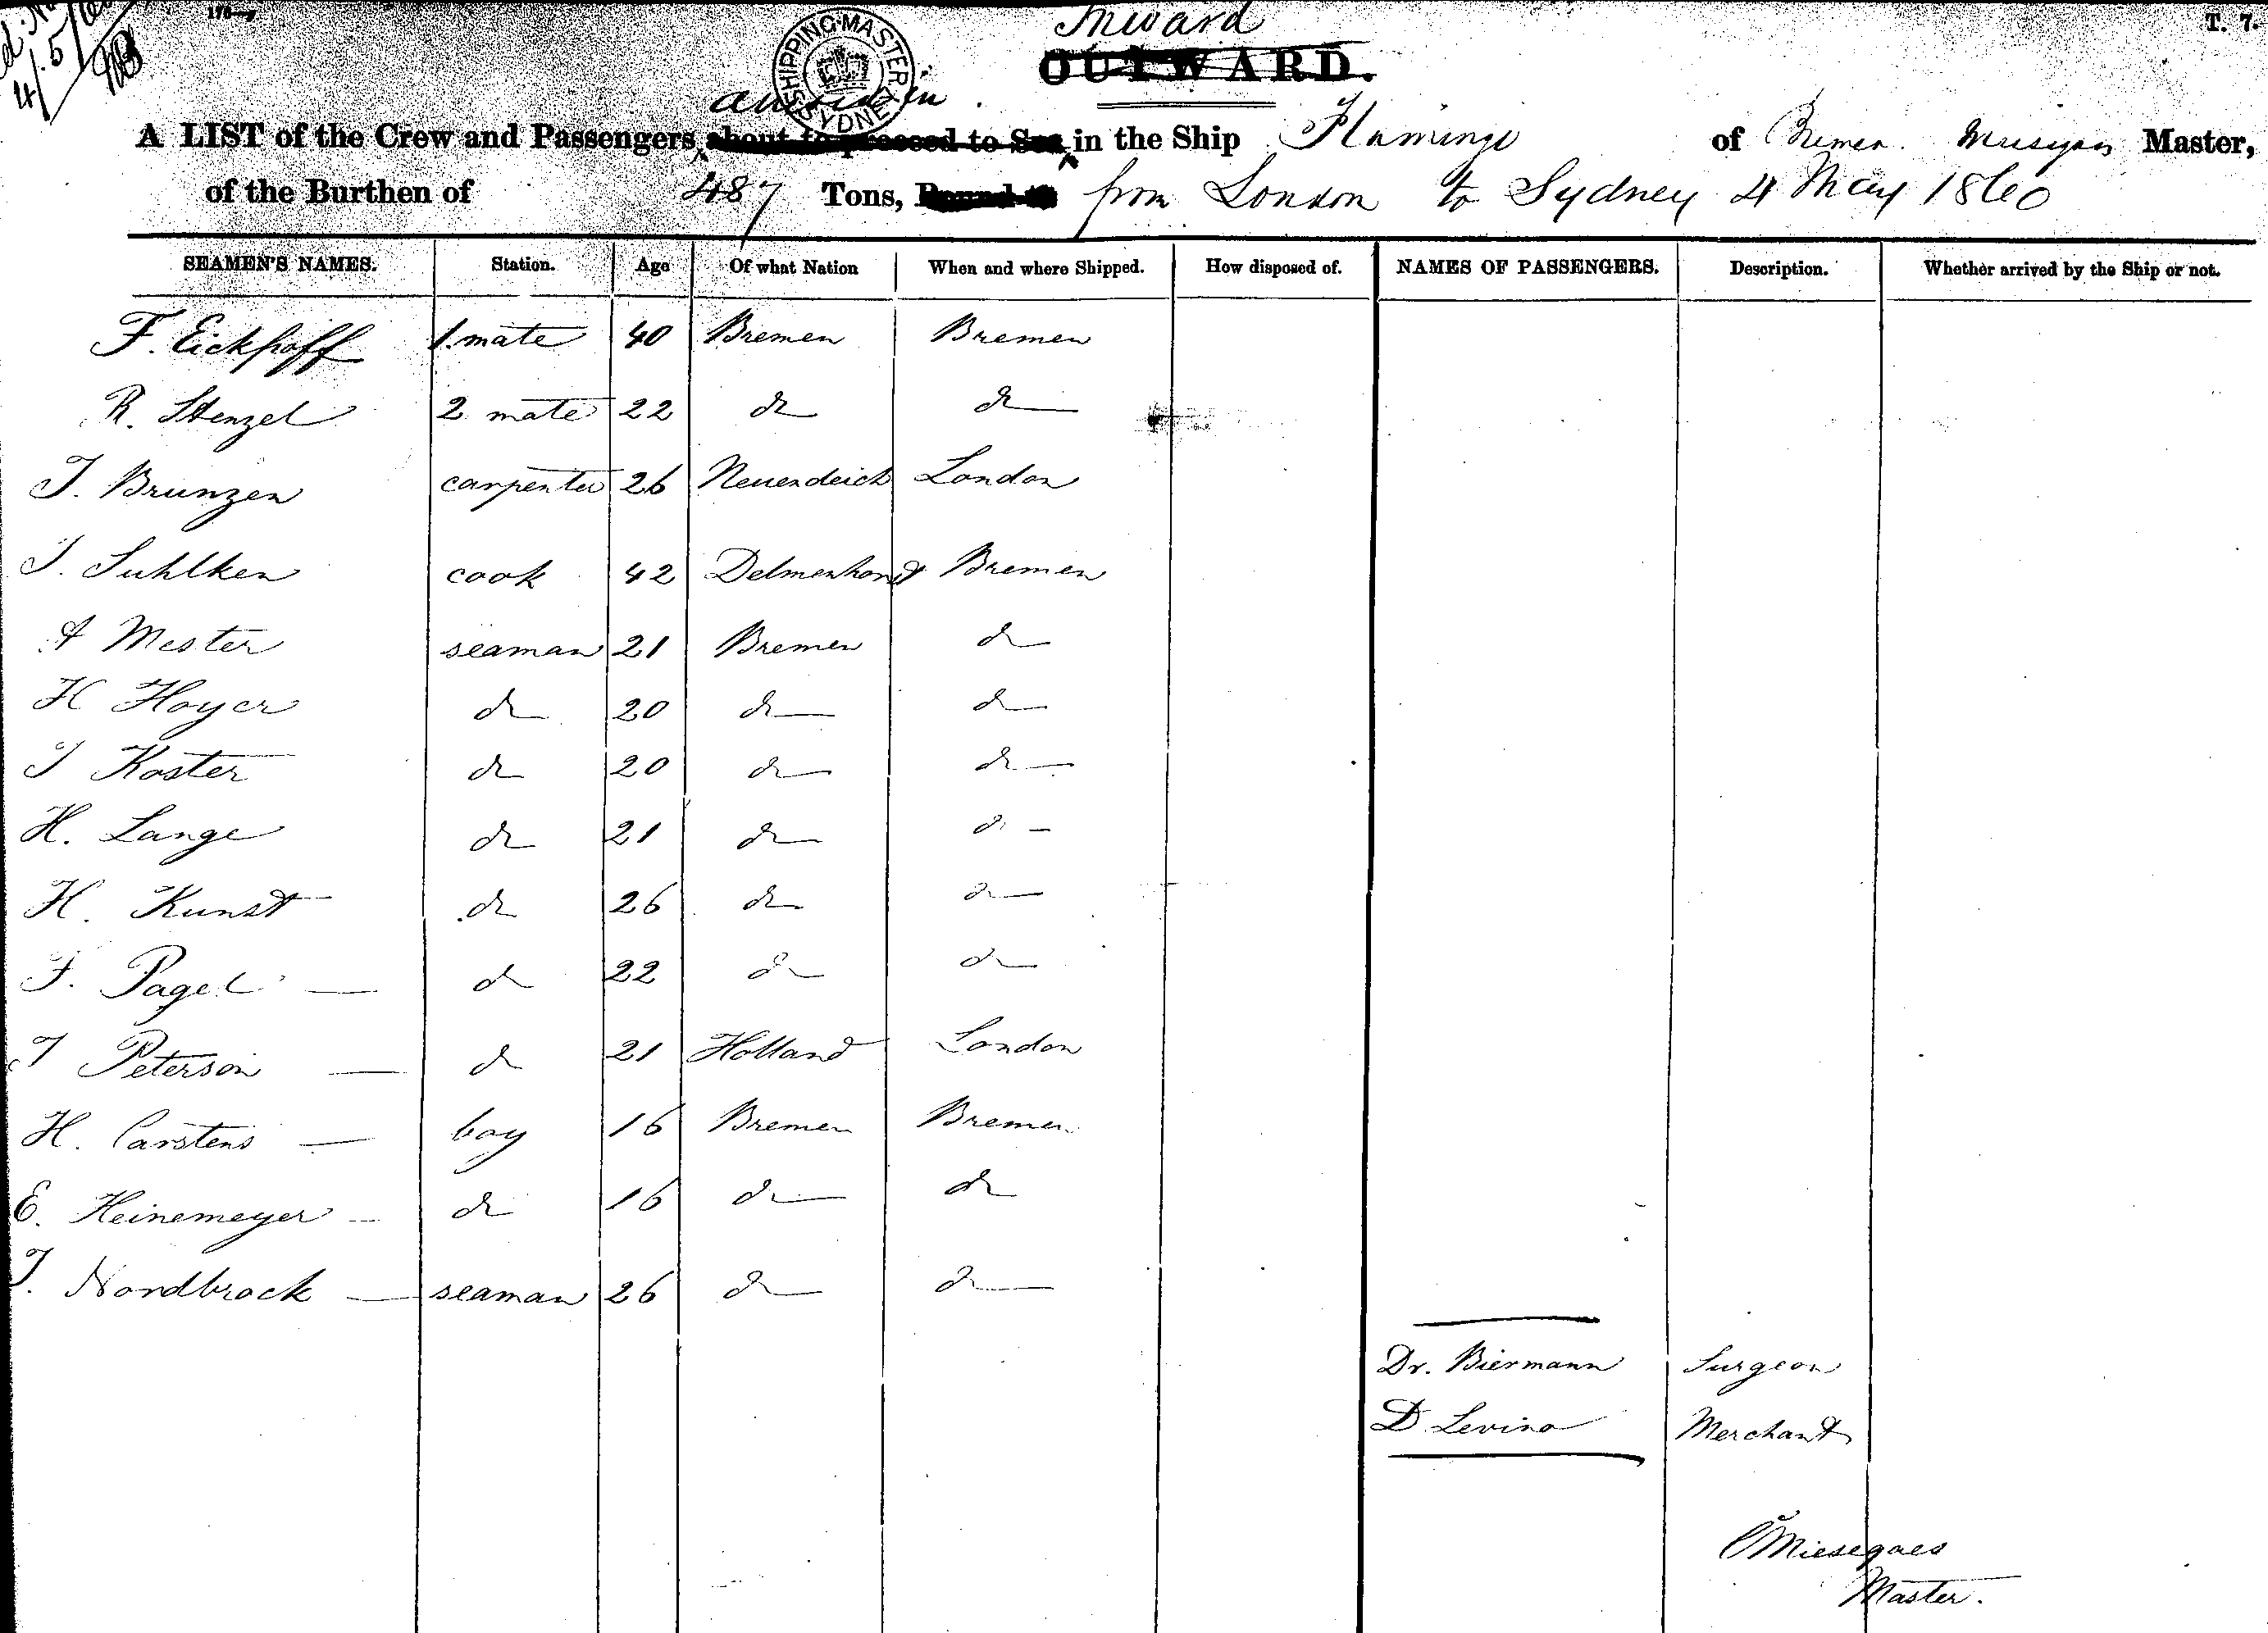 176— Inward T. 7.
4/5/60
SHIPPING MASTER SYDNEY
OUTWARD.
arrived in
A LIST of the Crew and Passengers about to proceed to Sea in the Ship Flamingo of Bremen Master,
of the Burthen of 487 Tons, Bound to from London to Sydney 4 May 1860
SEAMEN'S NAMES. Station. Age Of what Nation When and where Shipped. How disposed of. NAMES OF PASSENGERS. Description. Whether arrived by the Ship or not.
F. Eickhoff 1. mate 40 Bremen Bremen
R. Stenzel 2 mate 22 do do
J. Brunzen carpenter 26 Neuendeich London
J. Suhlken cook 42 Delmenhorst Bremen
A Mester seaman 21 Bremen do
H Hoyer do 20 do do
J Koster do 20 do do
H. Lange do 21 do do
H. Kunst do 26 do do
F. Pagel do 22 do do
J Peterson do 21 Holland London
H. Carstens boy 16 Bremen Bremen
E. Heinemeyer do 16 do do
J. Nordbrock seaman 26 do do
Dr. Biermann Surgeon
D Levino Merchant
C Miesegaes
Master.